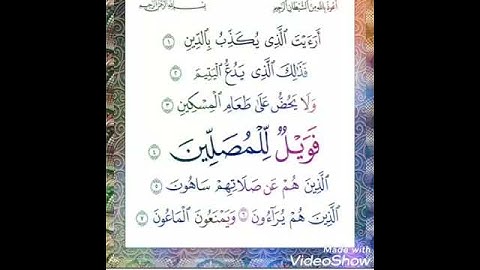 أعوذ بالله من الشيطان الرجيم
بسم الله الرحمن الرحيم
أَرَءَيْتَ ٱلَّذِى يُكَذِّبُ بِٱلدِّينِ ١
فَذَٰلِكَ ٱلَّذِى يَدُعُّ ٱلْيَتِيمَ ٢
وَلَا يَحُضُّ عَلَىٰ طَعَامِ ٱلْمِسْكِينِ ٣
فَوَيْلٌ لِّلْمُصَلِّينَ ٤
ٱلَّذِينَ هُمْ عَن صَلَاتِهِمْ سَاهُونَ ٥
ٱلَّذِينَ هُمْ يُرَآءُونَ ٦ وَيَمْنَعُونَ ٱلْمَاعُونَ ٧
Made with
VideoShow